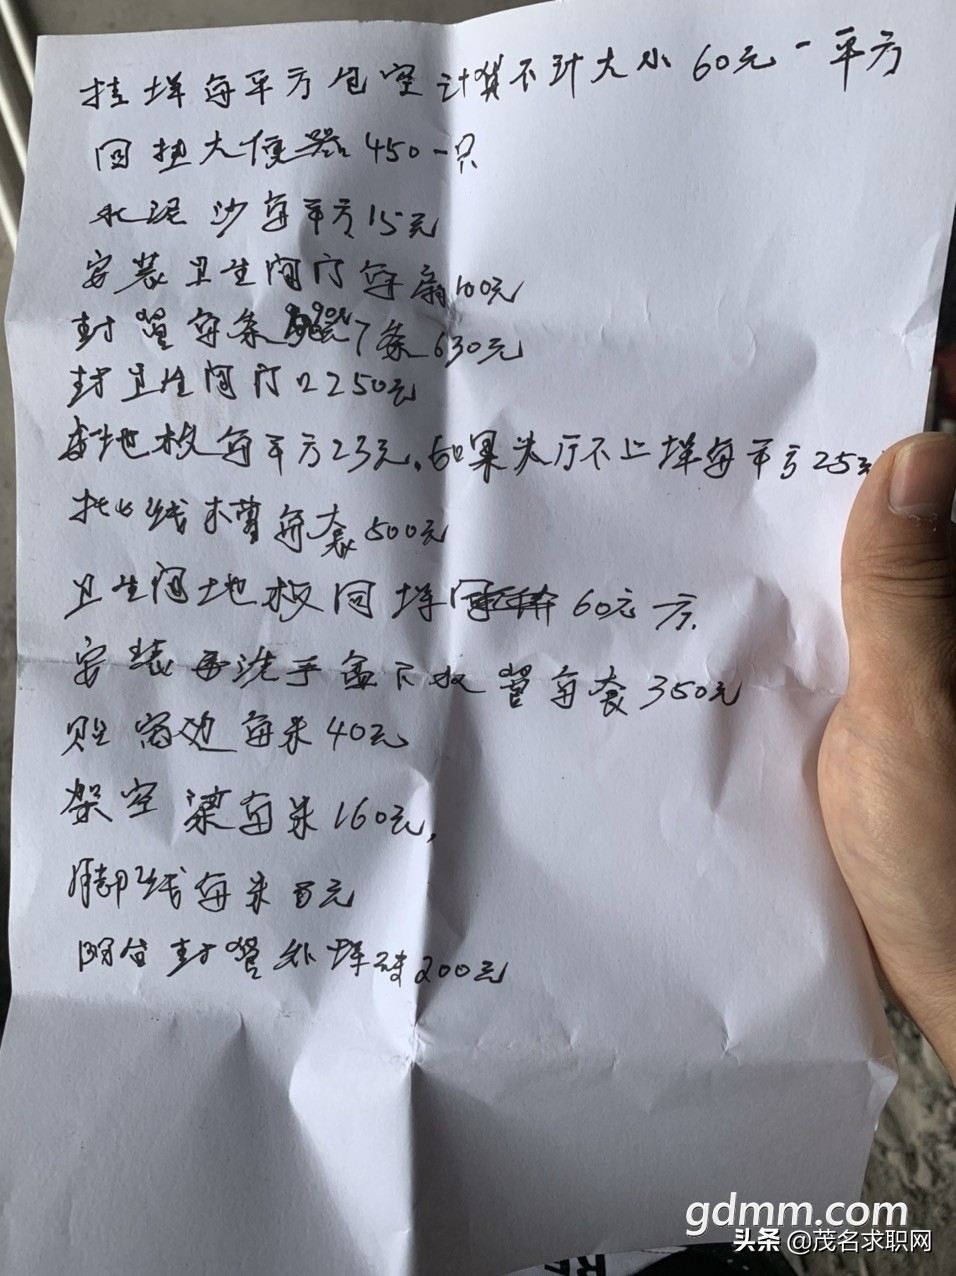 挂垟每平方包空计算不计大小60元一平方
回垫大便器450一只
水泥沙每平方15元
安装卫生间门每扇100元
封管每条90元7条630元
封卫生间门口250元
地板每平方23元，如果头厅不上垟每平方25元
批线木槽每套500元
卫生间地板回垟60元一方.
安装洗手盆下水管每套350元
贴窗边每米40元
架空梁每米160元，
脚线每米8元
阳台封管外垟砖200元
gdmm.com
头条 @茂名求职网